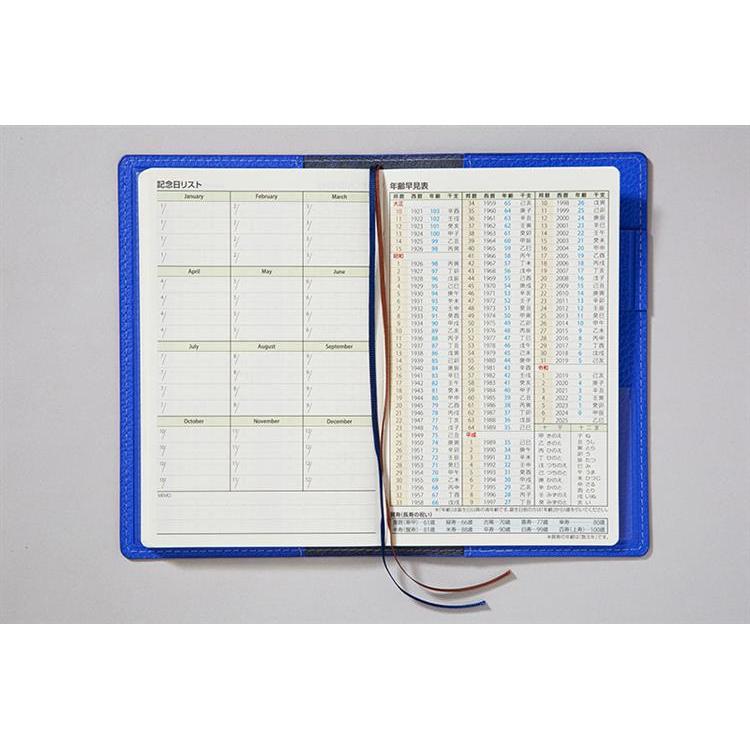 記念日リスト
January February March
1/ 2/ 3/
1/ 2/ 3/
1/ 2/ 3/
1/ 2/ 3/
April May June
4/ 5/ 6/
4/ 5/ 6/
4/ 5/ 6/
4/ 5/ 6/
July August September
7/ 8/ 9/
7/ 8/ 9/
7/ 8/ 9/
7/ 8/ 9/
October November December
10/ 11/ 12/
10/ 11/ 12/
10/ 11/ 12/
10/ 11/ 12/
MEMO
年齢早見表
邦暦 西暦 年齢 干支 邦暦 西暦 年齢 干支 邦暦 西暦 年齢 干支
大正
10 1921 103 辛酉
11 1922 102 壬戌
12 1923 101 癸亥
13 1924 100 甲子
14 1925 99 乙丑
15 1926 98 丙寅
昭和
1 1926 98 丙寅
2 1927 97 丁卯
3 1928 96 戊辰
4 1929 95 己巳
5 1930 94 庚午
6 1931 93 辛未
7 1932 92 壬申
8 1933 91 癸酉
9 1934 90 甲戌
10 1935 89 乙亥
11 1936 88 丙子
12 1937 87 丁丑
13 1938 86 戊寅
14 1939 85 己卯
15 1940 84 庚辰
16 1941 83 辛巳
17 1942 82 壬午
18 1943 81 癸未
19 1944 80 甲申
20 1945 79 乙酉
21 1946 78 丙戌
22 1947 77 丁亥
23 1948 76 戊子
24 1949 75 己丑
25 1950 74 庚寅
26 1951 73 辛卯
27 1952 72 壬辰
28 1953 71 癸巳
29 1954 70 甲午
30 1955 69 乙未
31 1956 68 丙申
32 1957 67 丁酉
33 1958 66 戊戌
34 1959 65 己亥
35 1960 64 庚子
36 1961 63 辛丑
37 1962 62 壬寅
38 1963 61 癸卯
39 1964 60 甲辰
40 1965 59 乙巳
41 1966 58 丙午
42 1967 57 丁未
43 1968 56 戊申
44 1969 55 己酉
45 1970 54 庚戌
46 1971 53 辛亥
47 1972 52 壬子
48 1973 51 癸丑
49 1974 50 甲寅
50 1975 49 乙卯
51 1976 48 丙辰
52 1977 47 丁巳
53 1978 46 戊午
54 1979 45 己未
55 1980 44 庚申
56 1981 43 辛酉
57 1982 42 壬戌
58 1983 41 癸亥
59 1984 40 甲子
60 1985 39 乙丑
61 1986 38 丙寅
62 1987 37 丁卯
63 1988 36 戊辰
64 1989 35 己巳
平成
1 1989 35 己巳
2 1990 34 庚午
3 1991 33 辛未
4 1992 32 壬申
5 1993 31 癸酉
6 1994 30 甲戌
7 1995 29 乙亥
8 1996 28 丙子
9 1997 27 丁丑
10 1998 26 戊寅
11 1999 25 己卯
12 2000 24 庚辰
13 2001 23 辛巳
14 2002 22 壬午
15 2003 21 癸未
16 2004 20 甲申
17 2005 19 乙酉
18 2006 18 丙戌
19 2007 17 丁亥
20 2008 16 戊子
21 2009 15 己丑
22 2010 14 庚寅
23 2011 13 辛卯
24 2012 12 壬辰
25 2013 11 癸巳
26 2014 10 甲午
27 2015 9 乙未
28 2016 8 丙申
29 2017 7 丁酉
30 2018 6 戊戌
31 2019 5 己亥
令和
1 2019 5 己亥
2 2020 4 庚子
3 2021 3 辛丑
4 2022 2 壬寅
5 2023 1 癸卯
6 2024 0 甲辰
7 2025 乙巳
十干 十二支
甲 きのえ 子 ね
乙 きのと 丑 うし
丙 ひのえ 寅 とら
丁 ひのと 卯 う
戊 つちのえ 辰 たつ
己 つちのと 巳 み
庚 かのえ 午 うま
辛 かのと 未 ひつじ
壬 みずのえ 申 さる
癸 みずのと 酉 とり
戌 いぬ
亥 い
賀寿(長寿の祝い)
還暦(華甲)…61歳 緑寿…66歳 古稀…70歳 喜寿…77歳 傘寿…80歳
米寿…88歳 卒寿…90歳 白寿…99歳 百寿(上寿)…100歳
※賀寿の年齢は「数え年」です。